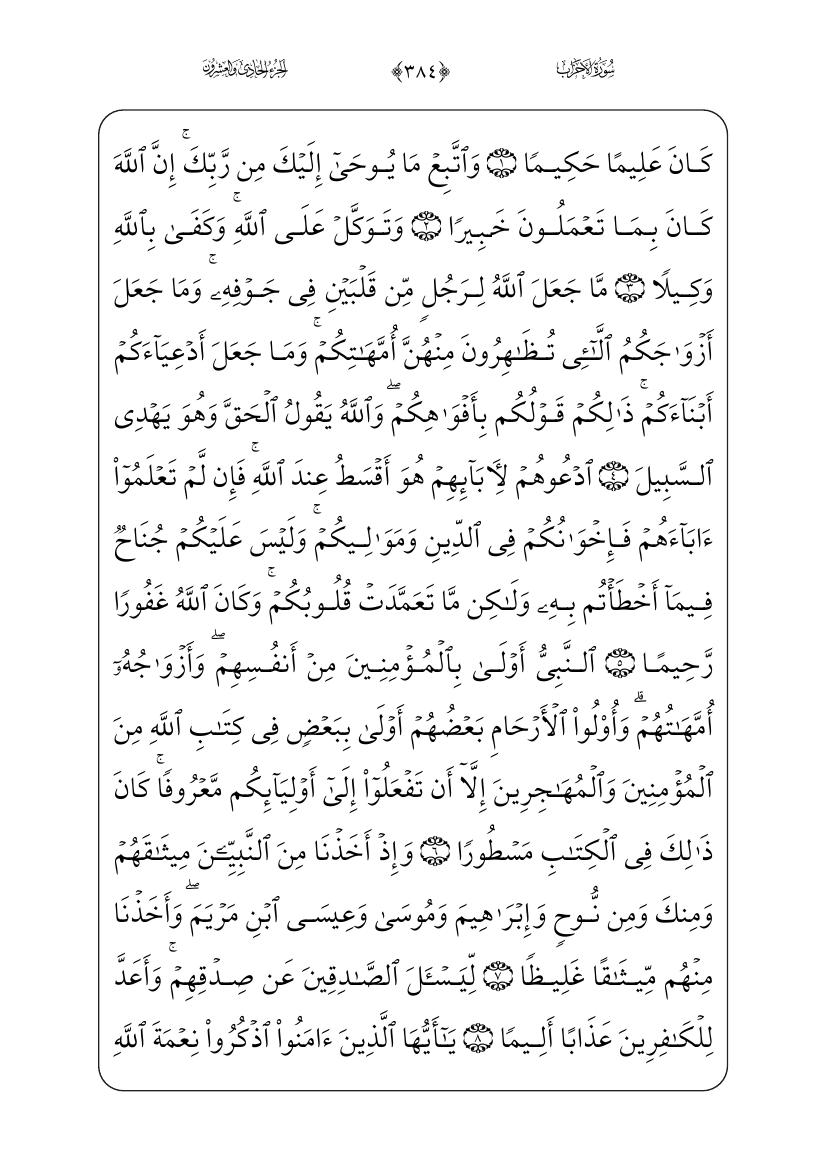 سُورَةُ الأَحْزَابِ ﴿٣٨٤﴾ الجُزْءُ الحَادِي وَالعِشْرُونَ
كَانَ عَلِيمًا حَكِيمًا ١ وَٱتَّبِعۡ مَا يُوحَىٰٓ إِلَيۡكَ مِن رَّبِّكَۚ إِنَّ ٱللَّهَ
كَانَ بِمَا تَعۡمَلُونَ خَبِيرًا ٢ وَتَوَكَّلۡ عَلَى ٱللَّهِۚ وَكَفَىٰ بِٱللَّهِ
وَكِيلًا ٣ مَّا جَعَلَ ٱللَّهُ لِرَجُلٍ مِّن قَلۡبَيۡنِ فِي جَوۡفِهِۦۚ وَمَا جَعَلَ
أَزۡوَٰجَكُمُ ٱلَّٰٓـِٔي تُظَٰهِرُونَ مِنۡهُنَّ أُمَّهَٰتِكُمۡۚ وَمَا جَعَلَ أَدۡعِيَآءَكُمۡ
أَبۡنَآءَكُمۡۚ ذَٰلِكُمۡ قَوۡلُكُم بِأَفۡوَٰهِكُمۡۖ وَٱللَّهُ يَقُولُ ٱلۡحَقَّ وَهُوَ يَهۡدِي
ٱلسَّبِيلَ ٤ ٱدۡعُوهُمۡ لِأٓبَآئِهِمۡ هُوَ أَقۡسَطُ عِندَ ٱللَّهِۚ فَإِن لَّمۡ تَعۡلَمُوٓاْ
ءَابَآءَهُمۡ فَإِخۡوَٰنُكُمۡ فِي ٱلدِّينِ وَمَوَٰلِيكُمۡۚ وَلَيۡسَ عَلَيۡكُمۡ جُنَاحٌ
فِيمَآ أَخۡطَأۡتُم بِهِۦ وَلَٰكِن مَّا تَعَمَّدَتۡ قُلُوبُكُمۡۚ وَكَانَ ٱللَّهُ غَفُورًا
رَّحِيمًا ٥ ٱلنَّبِيُّ أَوۡلَىٰ بِٱلۡمُؤۡمِنِينَ مِنۡ أَنفُسِهِمۡۖ وَأَزۡوَٰجُهُۥٓ
أُمَّهَٰتُهُمۡۗ وَأُوْلُواْ ٱلۡأَرۡحَامِ بَعۡضُهُمۡ أَوۡلَىٰ بِبَعۡضٍ فِي كِتَٰبِ ٱللَّهِ مِنَ
ٱلۡمُؤۡمِنِينَ وَٱلۡمُهَٰجِرِينَ إِلَّآ أَن تَفۡعَلُوٓاْ إِلَىٰٓ أَوۡلِيَآئِكُم مَّعۡرُوفًاۚ كَانَ
ذَٰلِكَ فِي ٱلۡكِتَٰبِ مَسۡطُورًا ٦ وَإِذۡ أَخَذۡنَا مِنَ ٱلنَّبِيِّـۧنَ مِيثَٰقَهُمۡ
وَمِنكَ وَمِن نُّوحٍ وَإِبۡرَٰهِيمَ وَمُوسَىٰ وَعِيسَى ٱبۡنِ مَرۡيَمَۖ وَأَخَذۡنَا
مِنۡهُم مِّيثَٰقًا غَلِيظًا ٧ لِّيَسۡـَٔلَ ٱلصَّٰدِقِينَ عَن صِدۡقِهِمۡۚ وَأَعَدَّ
لِلۡكَٰفِرِينَ عَذَابًا أَلِيمًا ٨ يَٰٓأَيُّهَا ٱلَّذِينَ ءَامَنُواْ ٱذۡكُرُواْ نِعۡمَةَ ٱللَّهِ